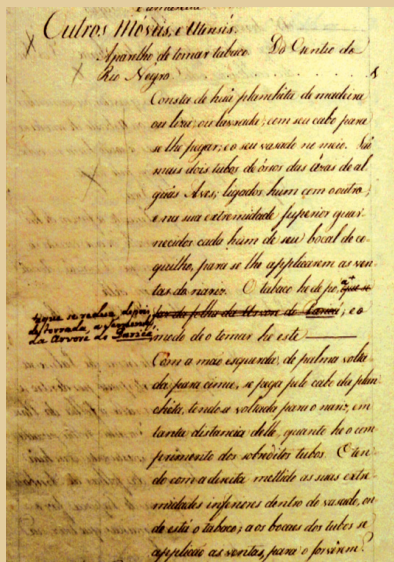 Outros Móveis, e Utensis.
Aparelho de tomar tabaco. Do Gentio do
Rio Negro
Consta de huã planchita de madeira
ou liza, ou lavrada; com seu cabo para
se lhe pegar; e o seu vasado no meio. São
mais dois tubos de óssos das côxas de al
guãs Aves; ligados hum com o outro;
e na sua extremidade superior guar
necidos cada hum de seu bocal de co
quilho, para se lhe applicarem as ven
tas do nariz. O tabaco he de pó, que se
faz da folha da Arvore de Paricá; e o
modo de o tomar he este
que se reduz, depois
de torrada, a
da Arvore de Paricá
Com a mão esquerda de palma volta
da para cima, se pega pelo cabo da plan
chita, tendo-se voltada para o nariz, em
tanta distancia delle, quanto he o com
primento dos sobreditos tubos. E ten
do com a direita mettido as suas extre
midades inferiores dentro do vasado, on
de está o tabaco; aos bocaes dos tubos se
applicão as ventas, para o sorverem.